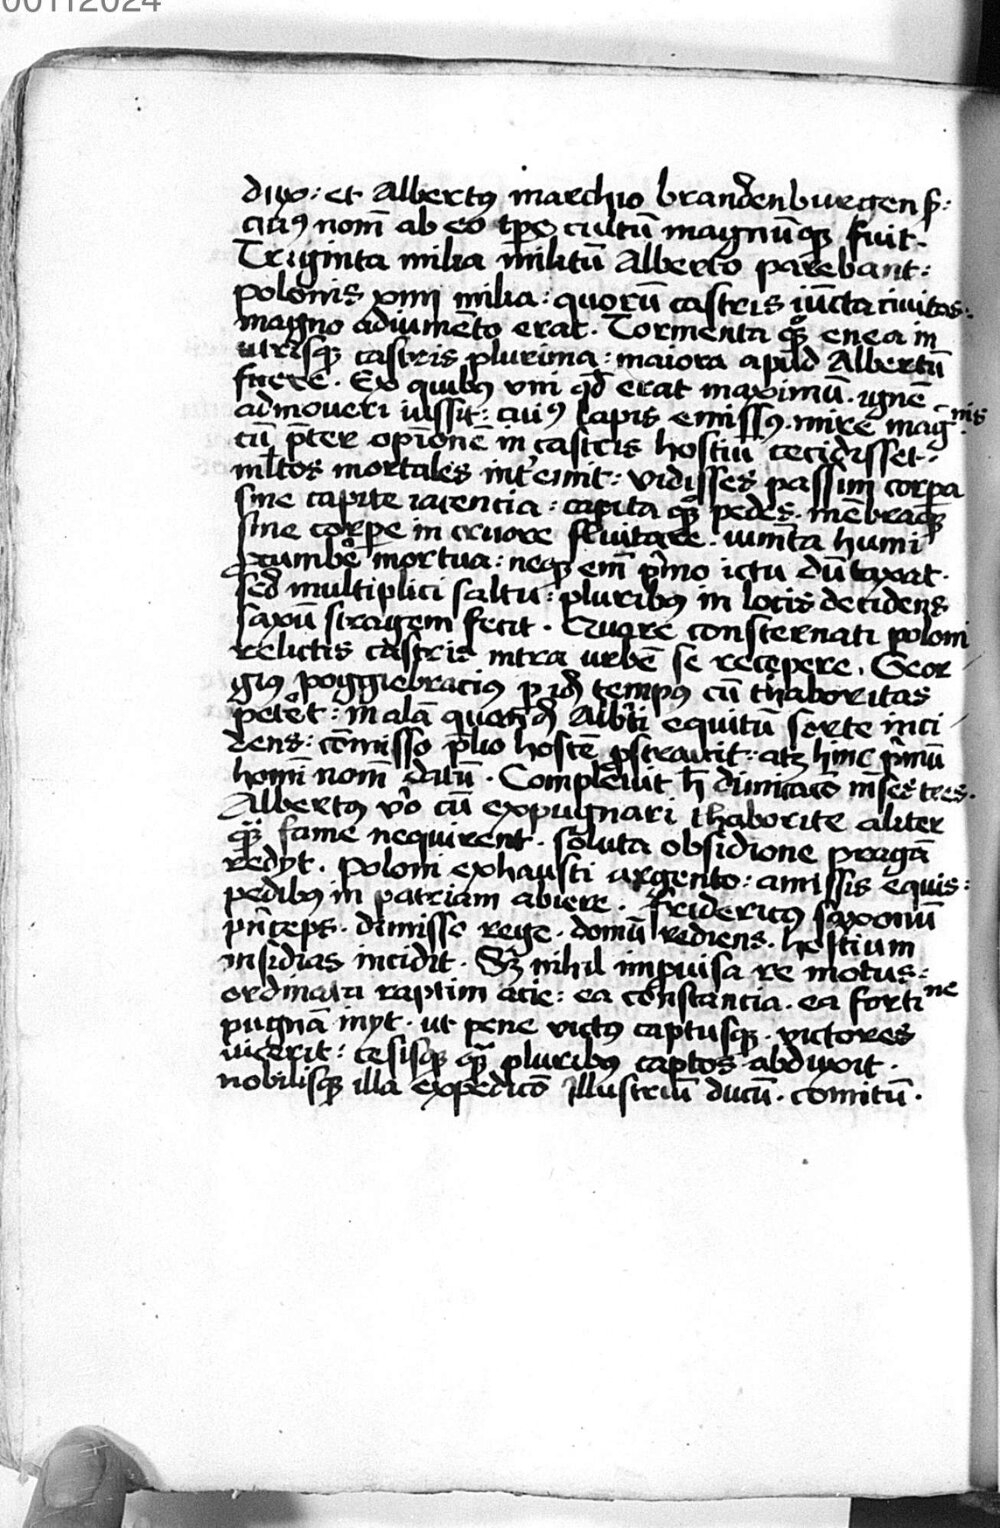 00112024
dux: et Albertꝰ marchio brandenburgenſ:
cuiꝰ nom̄ ab eo tp̄e cultū magnūqꝫ fuit.
Triginta milia militū Alberto parebant:
polonis xiiii milia: quorū castris iūcta ciuitas.
magno adiumēto erat. Tormenta qꝫ enea in
utrisqꝫ castris plurima: maiora apud Albertū
fuere. Ex quibꝰ vni qd̄ erat maximū. ignē
admoueri iussit: cuiꝰ lapis emissꝰ. mire magnis
cū p̄ter opīonē in castris hostiū cecidisset.
ml̄tos mortales int̄emit: vidisses passim corpa
sine capite iacencia: capita qꝫ pedes. mēbraqꝫ
sine corpe in cruore fluitare. iumēta humi
ꝓcumbe mortua: neqꝫ em̄ p̄mo ictu dūtaxat.
sed multiplici saltu: pluribꝰ in locis decidens
saxū stragem fecit. Cruore consternati poloni
relictis castris intra urbē se recepere. Geor
gius poggiebracius p id tempꝰ cū thaboritas
petēt: in alā quandā Alb̄ti equitū forte inci
dens: cōmisso p̄lio hostē ꝓstrauit: atqꝫ hinc p̄mū
homī nom̄ datū. Compleuit h̄ dimicacō mēses tres.
Albertꝰ v̄o cū expugnari thaborite aliter
qꝫ fame nequirent. soluta obsidione pragā
redyt. Poloni exhausti argento: amissis equis:
pedibꝰ in patriam abiere. Fridericꝰ saxonū
p̄nceps. dimisso rege. domū rediens. hostium
insidias incidit. Sꝫ nihil impuisa re motus:
ordinata raptim acie: ea constancia. ea fortine
pugnā inyt. ut pene victꝰ captusqꝫ. victores
vicerit: cesisqꝫ qꝫ pluribꝰ captos abduxit.
nobilisqꝫ illa expedicō illustriū ducū. comitū.